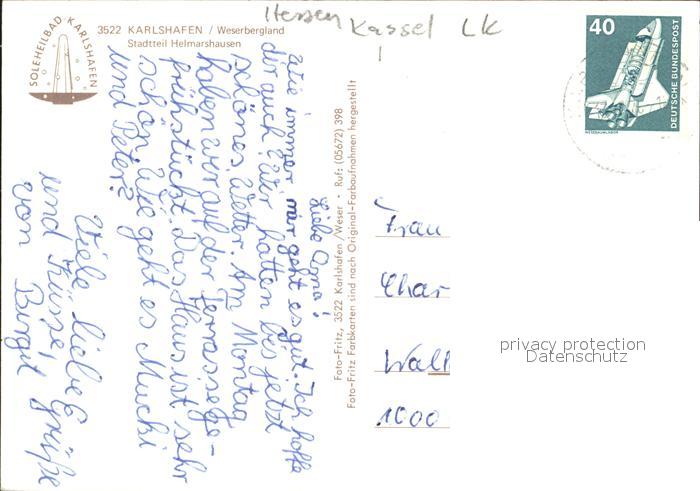 Hessen Kassel LK
SOLEHEILBAD KARLSHAFEN
3522 KARLSHAFEN / Weserbergland
Stadtteil Helmarshausen
40
DEUTSCHE BUNDESPOST
Liebe Oma!
Wie immer, mir geht es gut. Ich hoffe
dir auch? Wir hatten bis jetzt
schönes Wetter. Am Montag
haben wir auf der Terrasse ge-
frühstückt. Das Haus ist sehr
schön. Wie geht es Mucki
und Peter?
Viele liebe Grüße
und Küsse,
von Birgit
Foto-Fritz, 3522 Karlshafen/Weser · Ruf: (05672) 398
Foto-Fritz Farbkarten sind nach Original-Farbaufnahmen hergestellt
Frau
Char
Wall
1000
privacy protection
Datenschutz